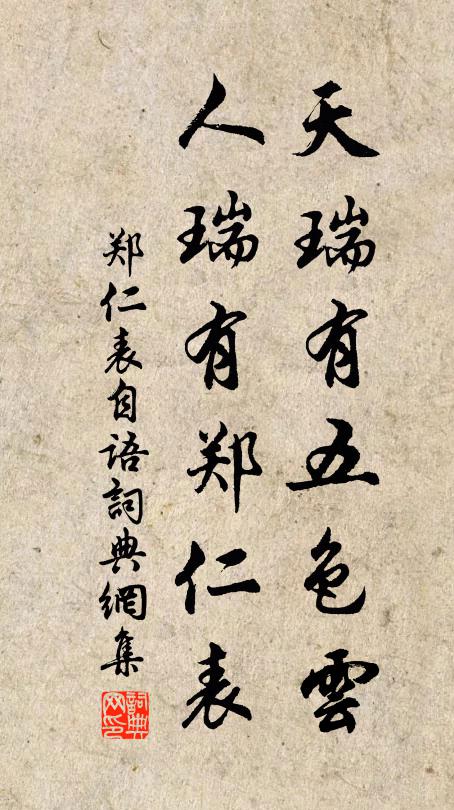 天瑞有五色雲
人瑞有郑仁表
郑仁表自语詞典網集
詞典网印